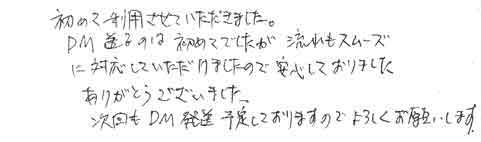 初めて利用させていただきました。
DM送るのは初めてでしたが流れもスムーズ
に対応していただけましたので安心しておりました
ありがとうございました。
次回もDM発送予定しておりますのでよろしくお願いします